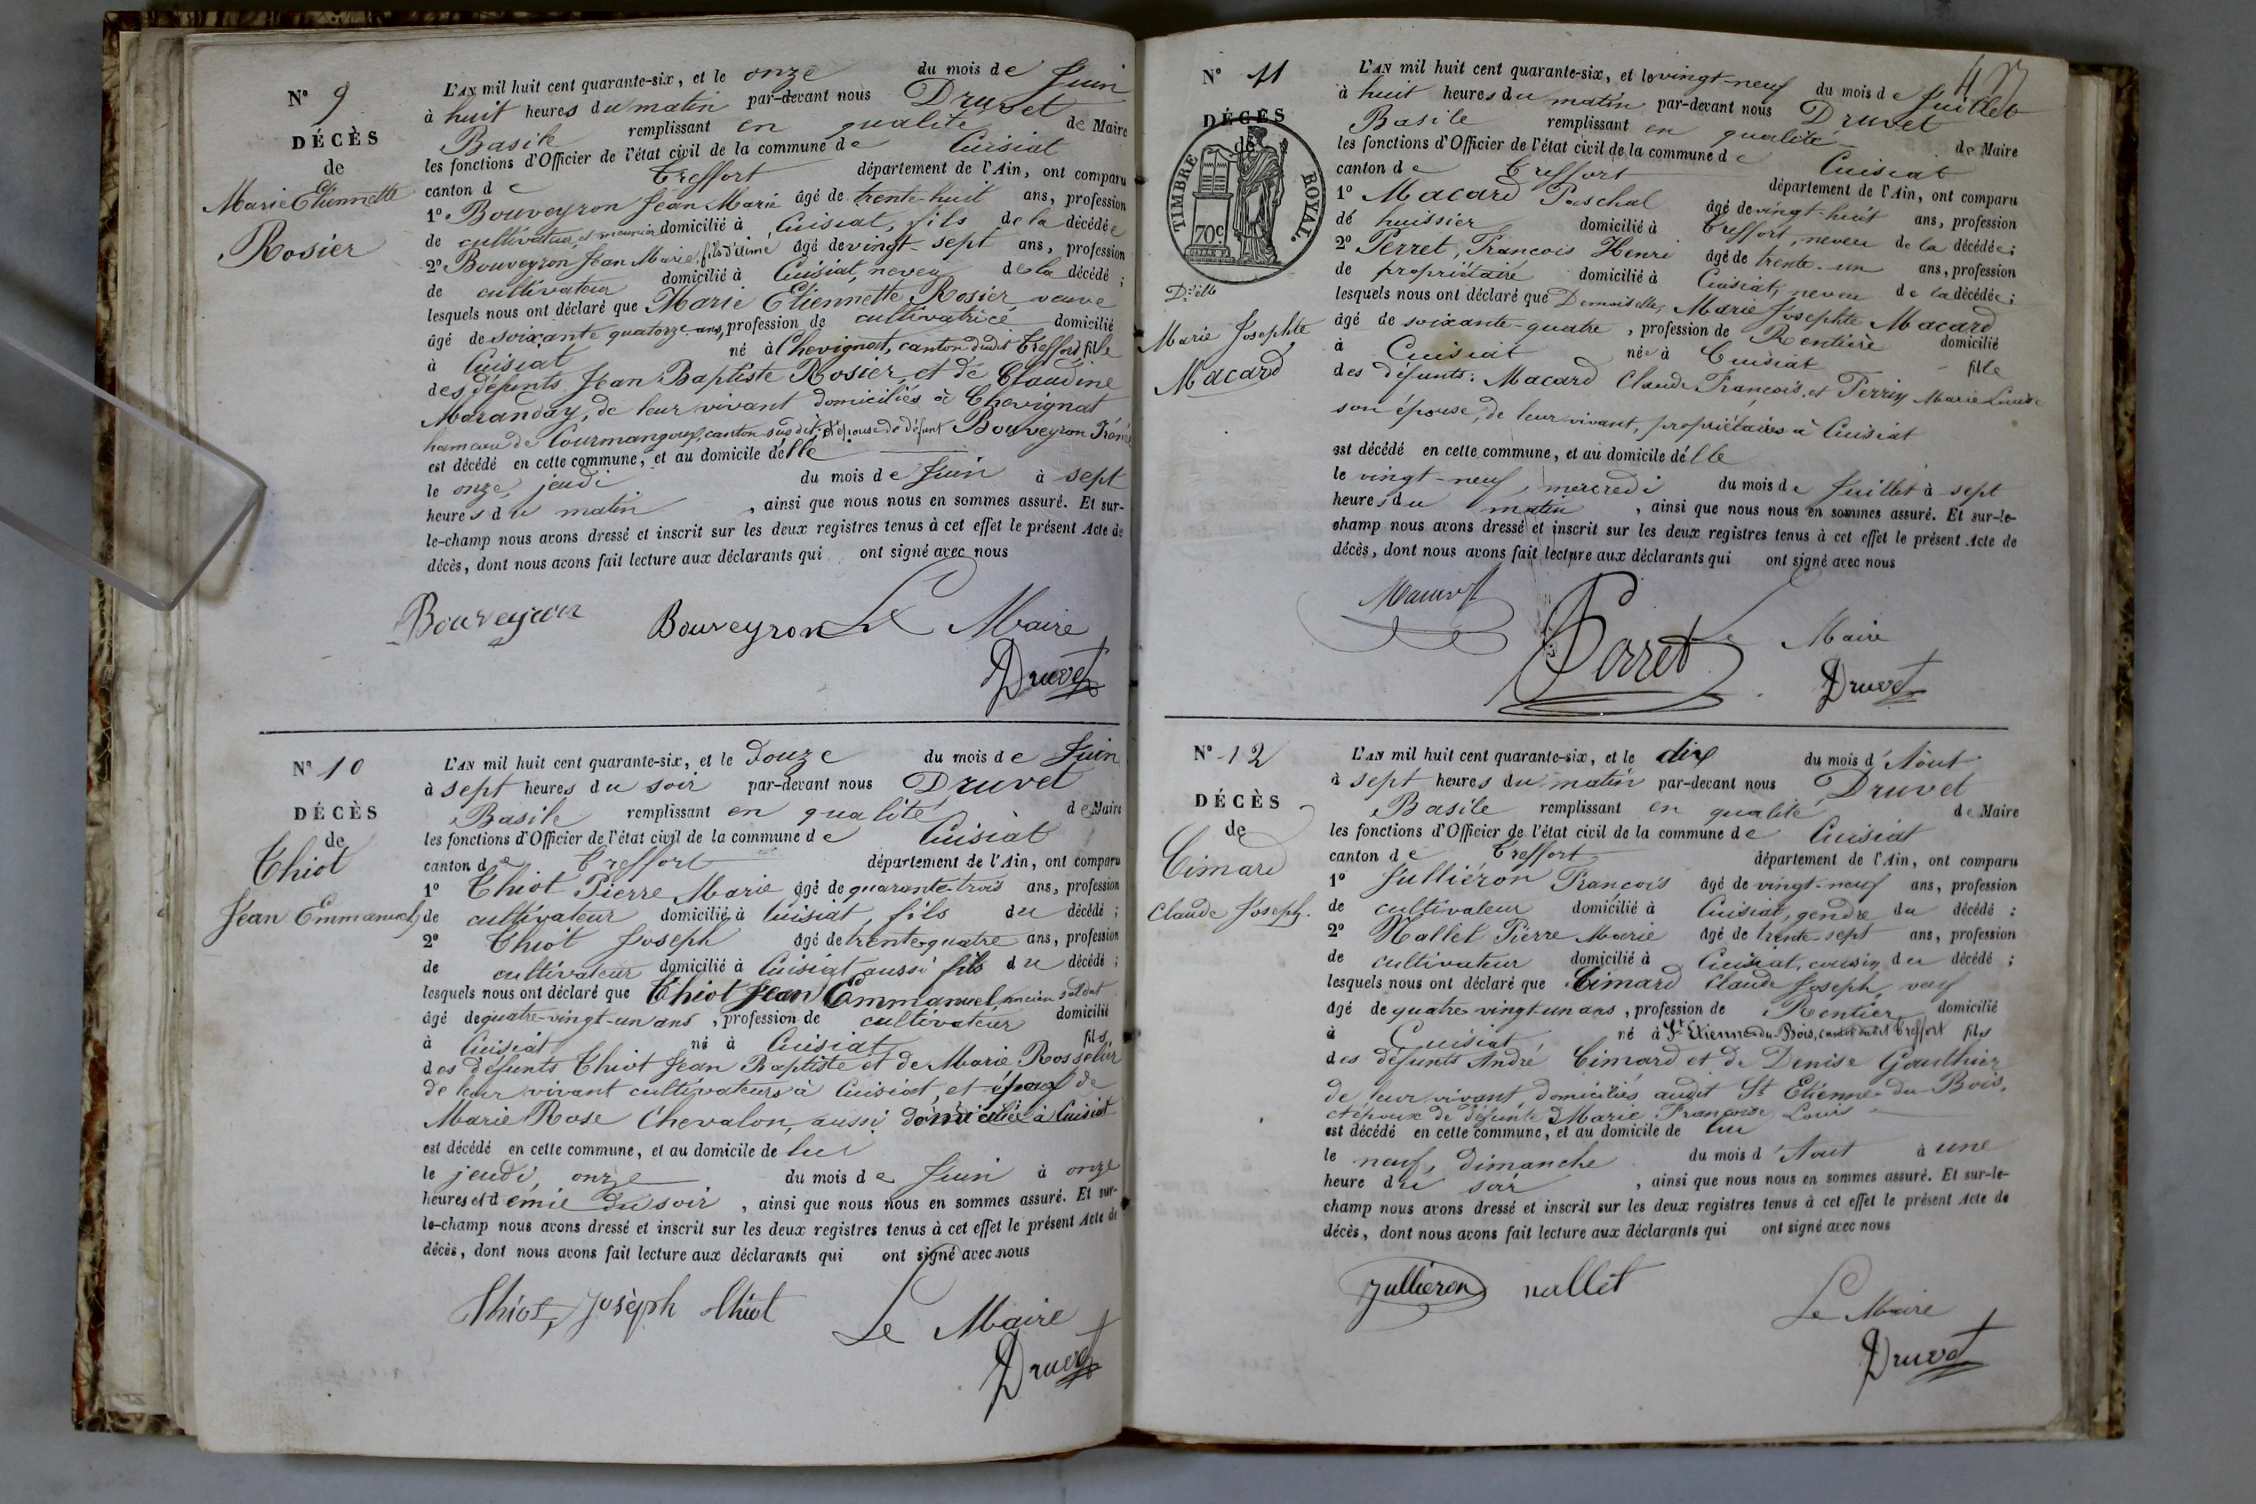 N° 9
DÉCÈS
de
Marie Etiennette
Rosier
L'AN mil huit cent quarante-six, et le onze du mois de Juin
à huit heures du matin par-devant nous Druvet
Basile remplissant en qualité de Maire
les fonctions d'Officier de l'état civil de la commune de Cuisiat
canton de Treffort département de l'Ain, ont comparu
1° Bouveyron Jean Marie âgé de trente-huit ans, profession
de cultivateur et meunier domicilié à Cuisiat, fils de la décédée
2° Bouveyron Jean Marie, fils d'aimé âgé de vingt-sept ans, profession
de cultivateur domicilié à Cuisiat, neveu de la décédé ;
lesquels nous ont déclaré que Marie Etiennette Rosier veuve
âgé de soixante quatorze ans, profession de cultivatrice domicilié
à Cuisiat né à Chevignat, canton dudit Treffort, fille
des défunts Jean Baptiste Rosier, et de Claudine
Maranday, de leur vivant domiciliés à Chevignat
hameau de Courmangoux, canton susdit, et épouse de défunt Bouveyron
est décédé en cette commune, et au domicile d'elle
le onze, jeudi du mois de Juin à sept
heures du matin, ainsi que nous nous en sommes assuré. Et sur-
le-champ nous avons dressé et inscrit sur les deux registres tenus à cet effet le présent Acte de
décès, dont nous avons fait lecture aux déclarants qui ont signé avec nous
Bouveyron Bouveyron Le Maire
Druvet
N° 10
DÉCÈS
de
Thiot
Jean Emmanuel
L'AN mil huit cent quarante-six, et le Douze du mois de Juin
à sept heures du soir par-devant nous Druvet
Basile remplissant en qualité de Maire
les fonctions d'Officier de l'état civil de la commune de Cuisiat
canton de Treffort département de l'Ain, ont comparu
1° Thiot Pierre Marie âgé de quarante-trois ans, profession
de cultivateur domicilié à Cuisiat, fils du décédé ;
2° Thiot Joseph âgé de trente-quatre ans, profession
de cultivateur domicilié à Cuisiat aussi fils du décédé ;
lesquels nous ont déclaré que Thiot Jean Emmanuel, ancien soldat
âgé de quatre-vingt-un ans, profession de cultivateur domicilié
à Cuisiat né à Cuisiat fils
des défunts Thiot Jean Baptiste et de Marie Rosselin
de leur vivant cultivateurs à Cuisiat, et époux de
Marie Rose Chevalon, aussi domiciliée à Cuisiat
est décédé en cette commune, et au domicile de lui
le jeudi, onze du mois de Juin à onze
heures et demie du soir, ainsi que nous nous en sommes assuré. Et sur-
le-champ nous avons dressé et inscrit sur les deux registres tenus à cet effet le présent Acte de
décès, dont nous avons fait lecture aux déclarants qui ont signé avec nous
Thiot, Josèph thiot Le Maire
Druvet
N° 11
DÉCÈS
de
TIMBRE ROYAL.
70c
Delle
Marie Josephte
Macard
L'AN mil huit cent quarante-six, et le vingt-neuf du mois de Juillet
à huit heures du matin par-devant nous Druvet
Basile remplissant en qualité de Maire
les fonctions d'Officier de l'état civil de la commune de Cuisiat
canton de Treffort département de l'Ain, ont comparu
1° Macard Paschal âgé de vingt-huit ans, profession
de huissier domicilié à Treffort, neveu de la décédée ;
2° Perret, François Henri âgé de trente-un ans, profession
de propriétaire domicilié à Cuisiat, neveu de la décédée ;
lesquels nous ont déclaré que Demoiselle, Marie Josephte Macard
âgé de soixante-quatre, profession de Rentière domicilié
à Cuisiat née à Cuisiat fille
des défunts : Macard Claude François, et Perrin Marie Louise
son épouse, de leur vivant, propriétaires à Cuisiat
est décédé en cette commune, et au domicile d'elle
le vingt-neuf, mercredi du mois de Juillet à sept
heures du matin, ainsi que nous nous en sommes assuré. Et sur-le-
champ nous avons dressé et inscrit sur les deux registres tenus à cet effet le présent Acte de
décès, dont nous avons fait lecture aux déclarants qui ont signé avec nous
Perret Le Maire
Druvet
N° 12
DÉCÈS
de
Cimard
Claude Joseph.
L'AN mil huit cent quarante-six, et le dix du mois d'Aout
à sept heures du matin par-devant nous Druvet
Basile remplissant en qualité de Maire
les fonctions d'Officier de l'état civil de la commune de Cuisiat
canton de Treffort département de l'Ain, ont comparu
1° Julliéron François âgé de vingt-neuf ans, profession
de cultivateur domicilié à Cuisiat, gendre du décédé ;
2° Nallet Pierre Marie âgé de trente-sept ans, profession
de cultivateur domicilié à Cuisiat, cousin du décédé ;
lesquels nous ont déclaré que Cimard Claude Joseph, veuf
âgé de quatre vingt un ans, profession de Rentier domicilié
à Cuisiat né à St Etienne du Bois, canton dudit Treffort fils
des défunts André Cimard et de Denise Gauthier
de leur vivant domiciliés audit St Etienne du Bois,
et époux de défunte Marie Françoise Louis
est décédé en cette commune, et au domicile de lui
le neuf, dimanche du mois d'Aout à une
heure du soir, ainsi que nous nous en sommes assuré. Et sur-le-
champ nous avons dressé et inscrit sur les deux registres tenus à cet effet le présent Acte de
décès, dont nous avons fait lecture aux déclarants qui ont signé avec nous
Jullieron nallet
Le Maire
Druvet